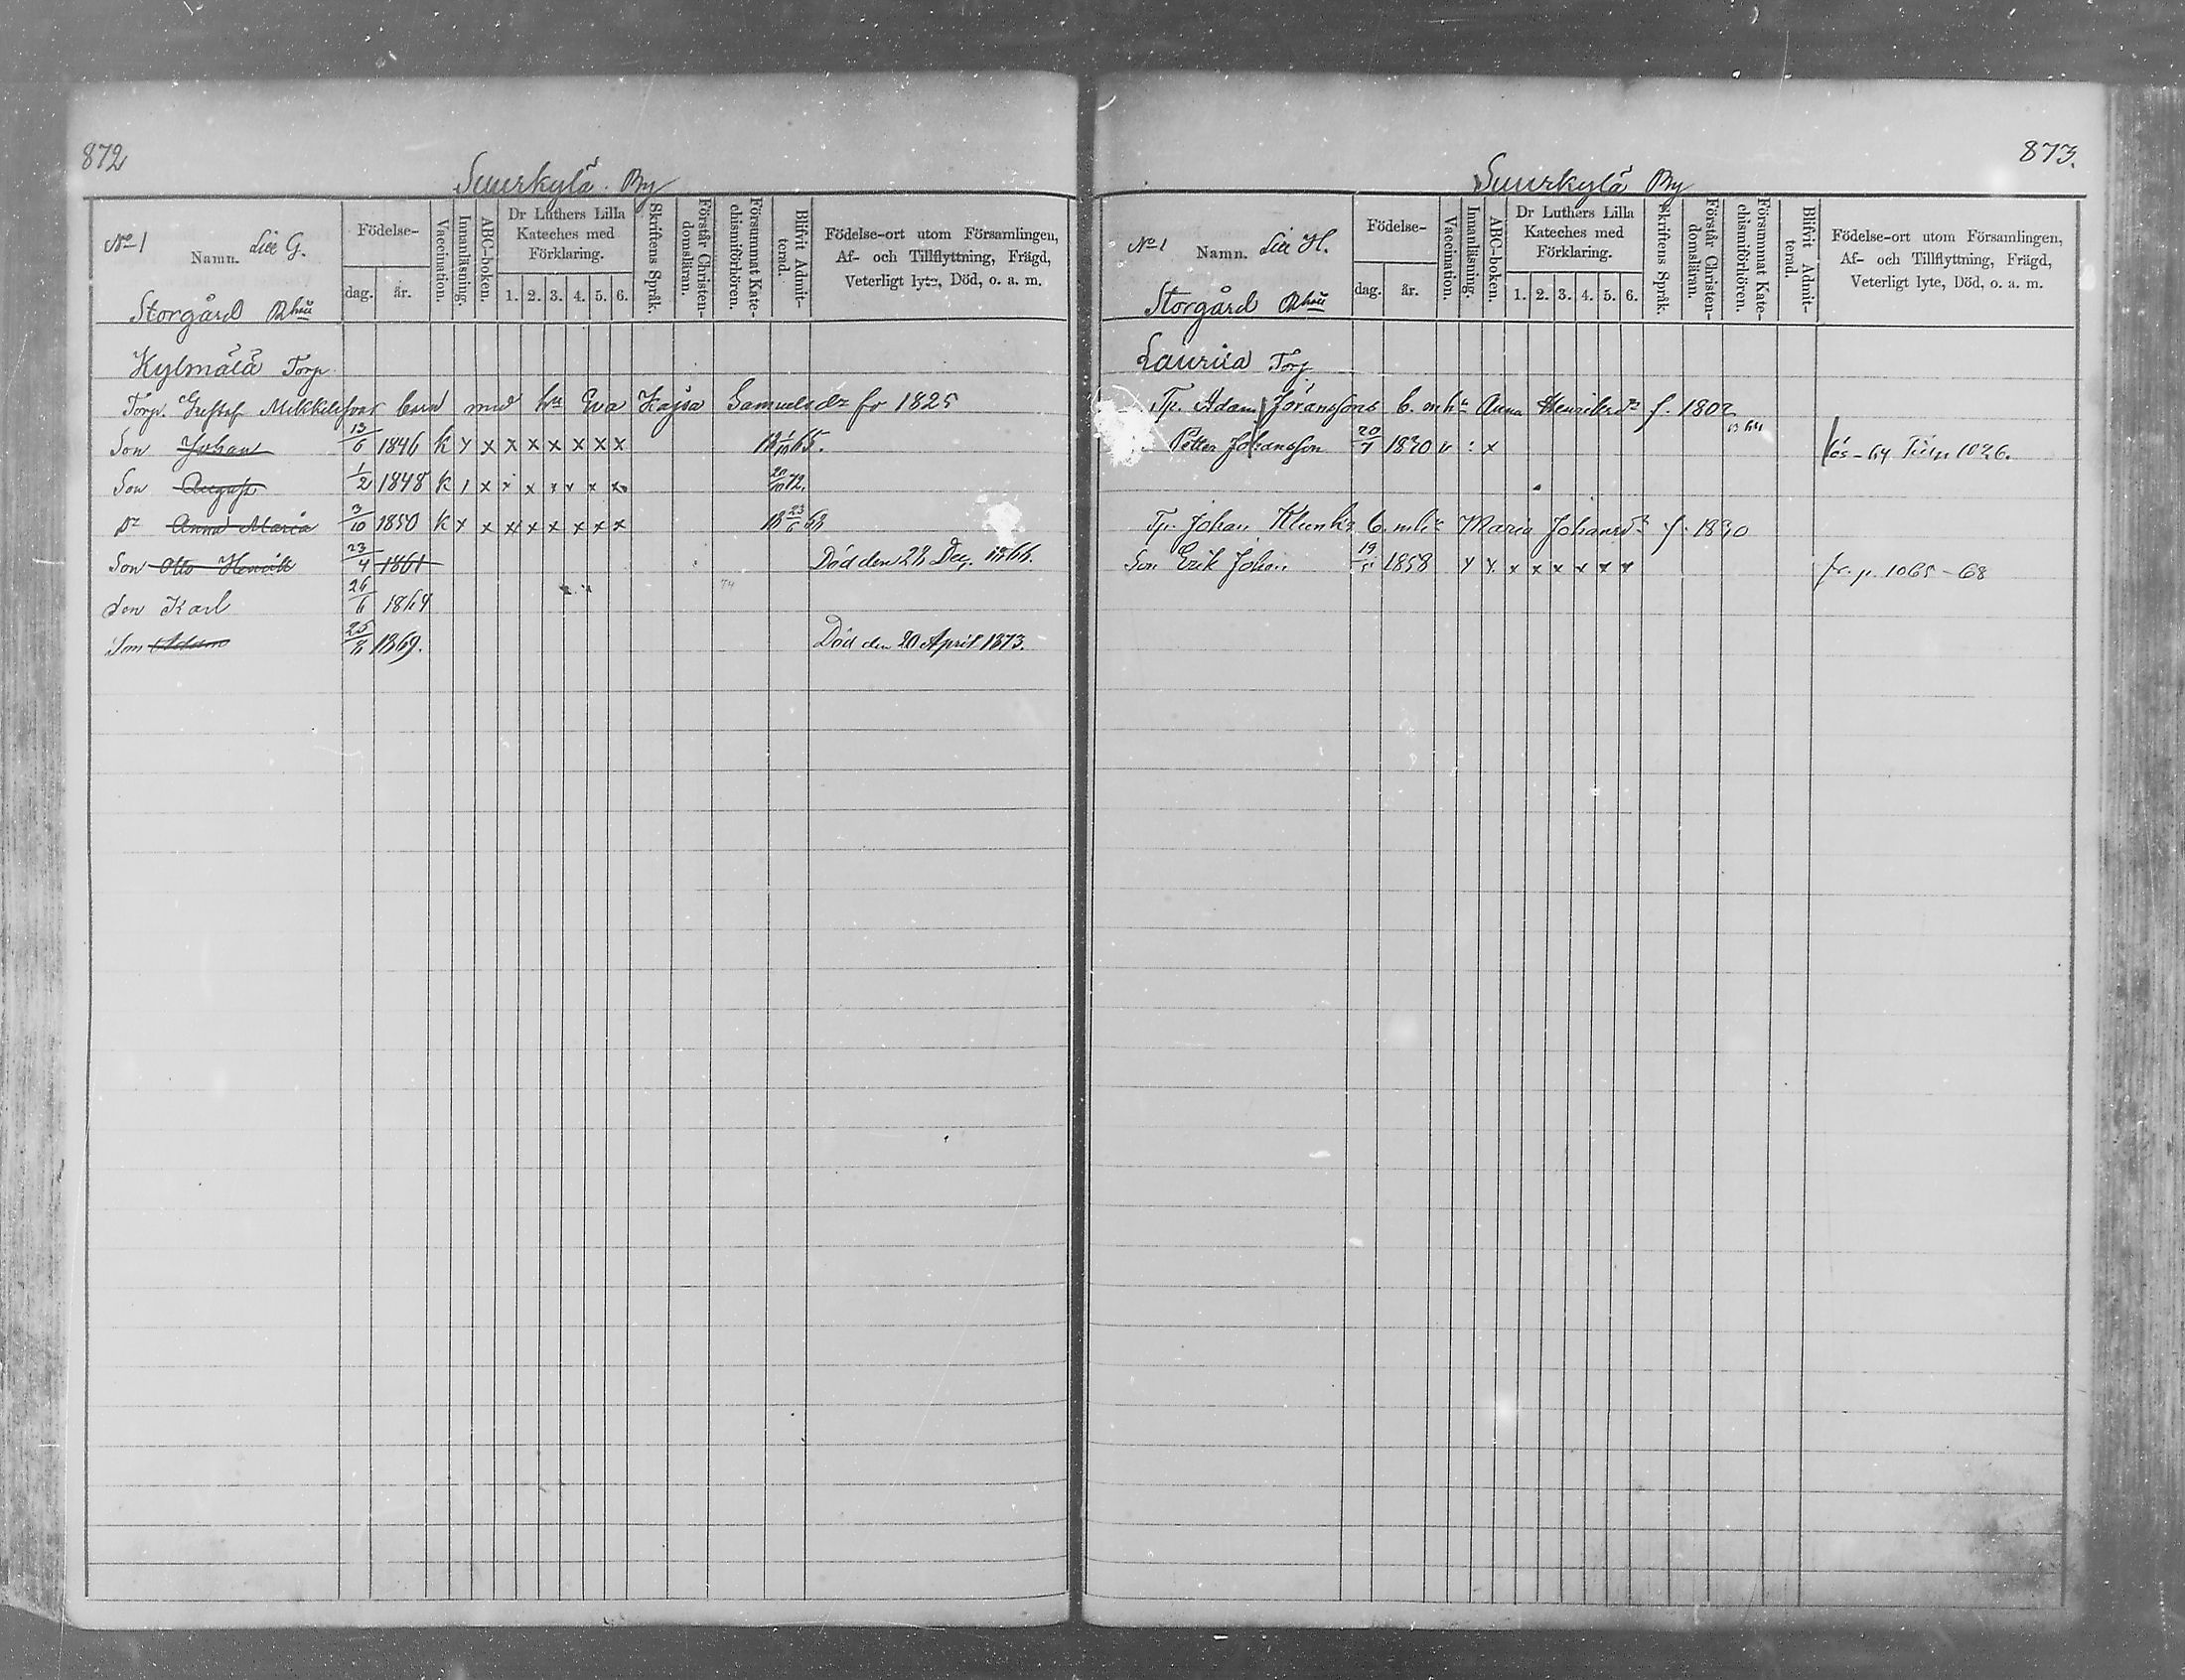 872
Suurkylä By
No 1 Namn. Litt G.
Storgård Rhåll
Födelse-
dag. år.
Vaccination.
Innanläsning.
ABC-boken.
Dr Luthers Lilla
Kateches med
Förklaring.
1. 2. 3. 4. 5. 6.
Skriftens Språk.
Förstår Christen-
domsläran.
Försummat Kate-
chismiförhören.
Blifvit Admit-
terad.
Födelse-ort utom Församlingen,
Af- och Tillflyttning, Frägd,
Veterligt lyte, Död, o. a. m.
Kylmälä Torp
Torp. Gustaf Mikkelssons barn med hu Eva Kajsa Samuelsdr fr 1825
Son Johan 13/6 1846 K x x x x x x x x 65.
Son August 1/2 1848 K x x x x x x x 72.
Dr Anna Maria 3/10 1850 K x x x x x x x x
Son Otto Henrik 23/4 1861 Död den 28 Dec. 1866.
Son Karl 26/6 1864 74
Son Adam 25/8 1869. Död den 20 April 1873.
873.
Suurkylä By
No 1 Namn. Litt H.
Storgård Rhåll
Födelse-
dag. år.
Vaccination.
Innanläsning.
ABC-boken.
Dr Luthers Lilla
Kateches med
Förklaring.
1. 2. 3. 4. 5. 6.
Skriftens Språk.
Förstår Christen-
domsläran.
Försummat Kate-
chismiförhören.
Blifvit Admit-
terad.
Födelse-ort utom Församlingen,
Af- och Tillflyttning, Frägd,
Veterligt lyte, Död, o. a. m.
Lauriia Torp
Tp. Adam Göranssons b. m hu Anna Henriksdr f. 1802
Petter Johansson 20/7 1830 v : x 64 1026.
Tp. Johan b. m hu Maria Johansdr f. 1830
Son Erik Johan 19 1858 x x x x x x x x fr. p. 1065-68